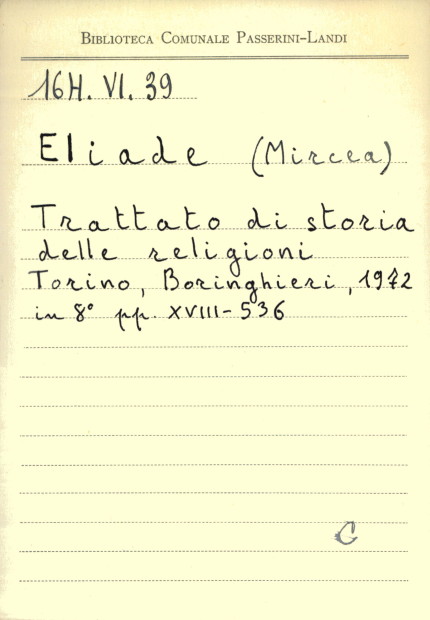 Biblioteca Comunale Passerini-Landi
16H. VI. 39
Eliade (Mircea)
Trattato di storia
delle religioni
Torino, Boringhieri, 1972
in 8° pp. XVIII-536
C